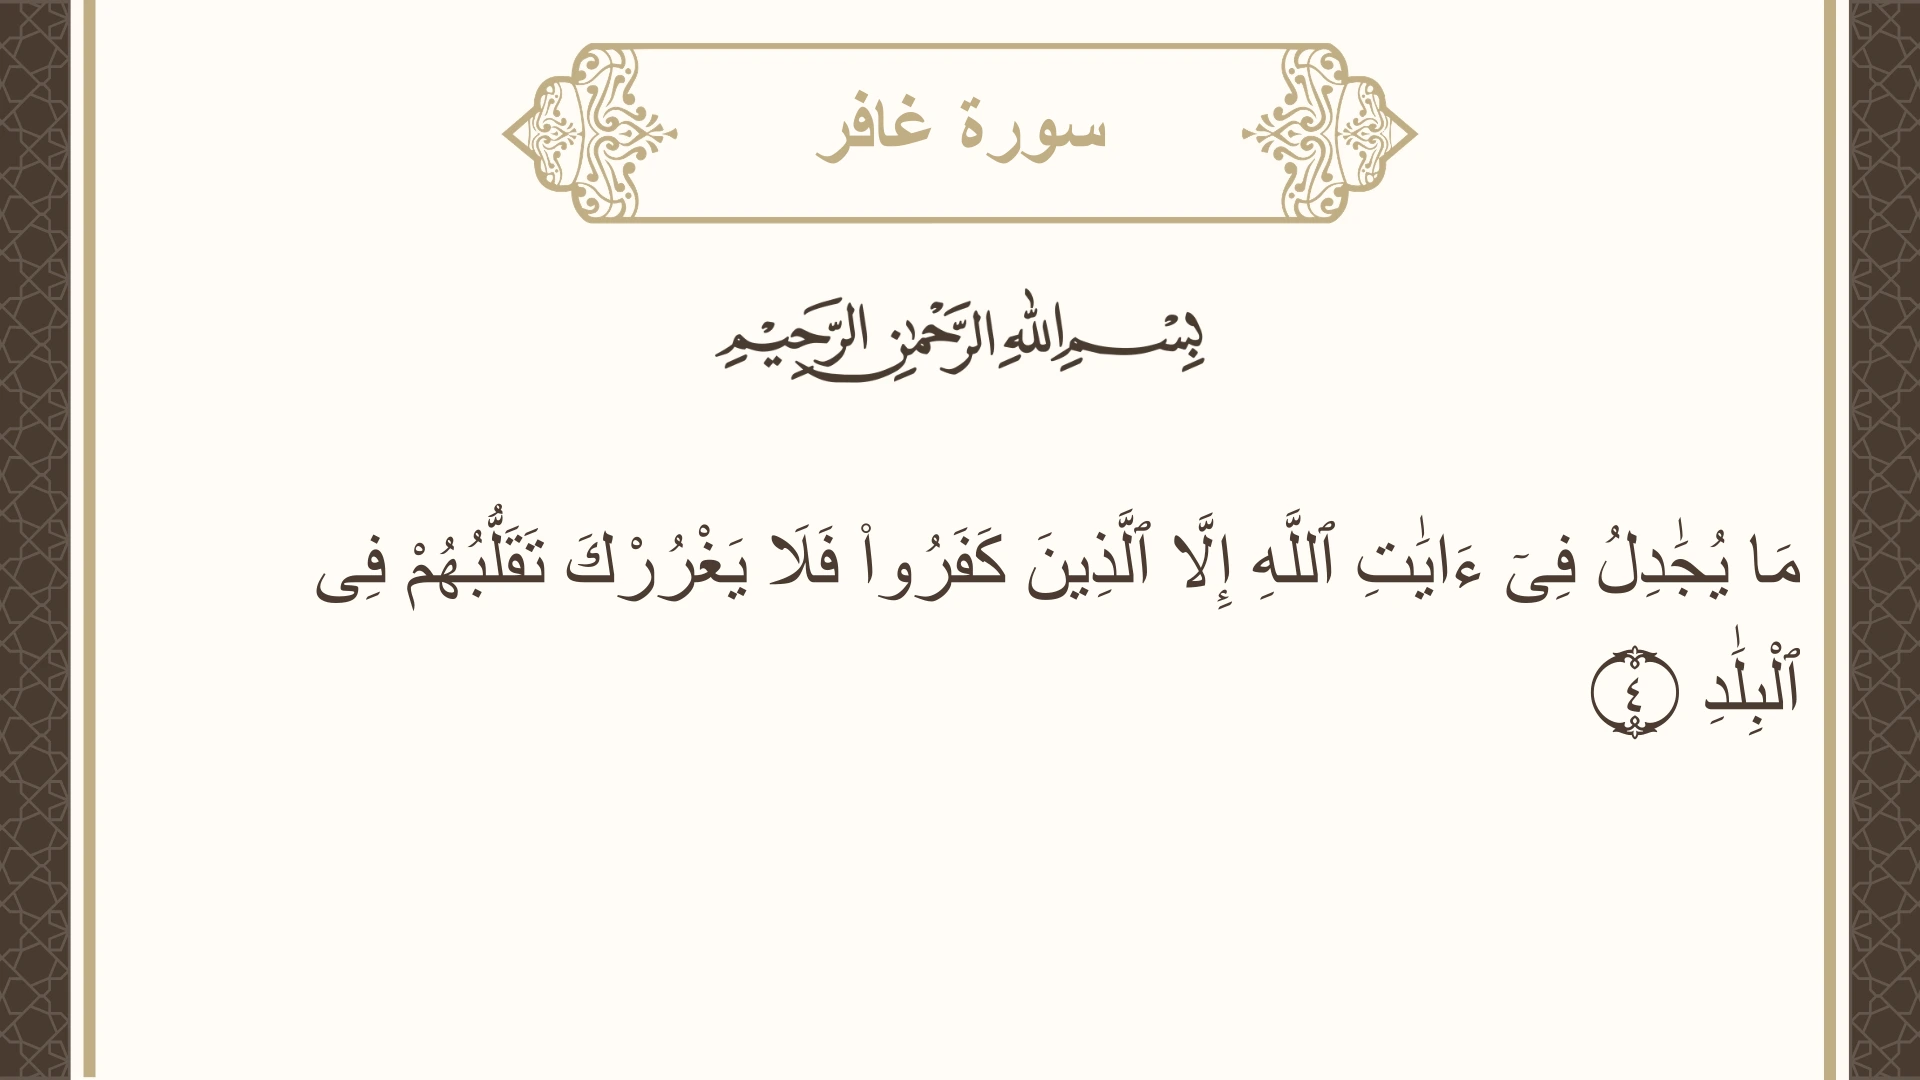 سورة غافر
بِسْمِ اللهِ الرَّحْمٰنِ الرَّحِيْمِ
مَا يُجَٰدِلُ فِىٓ ءَايَٰتِ ٱللَّهِ إِلَّا ٱلَّذِينَ كَفَرُوا۟ فَلَا يَغْرُرْكَ تَقَلُّبُهُمْ فِى
ٱلْبِلَٰدِ ٤